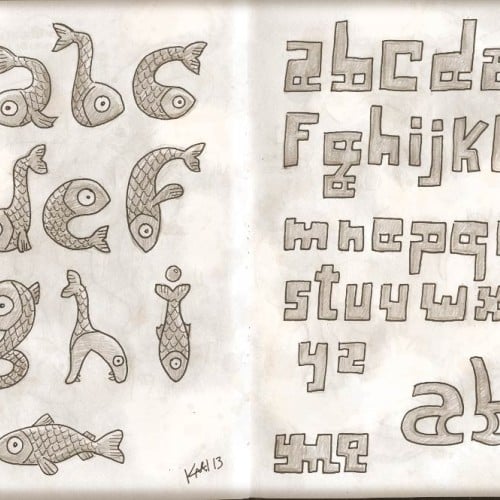 abc
def
ghi
13
abcd
Fghijkl
mnopq
stuvwx
yz
ab